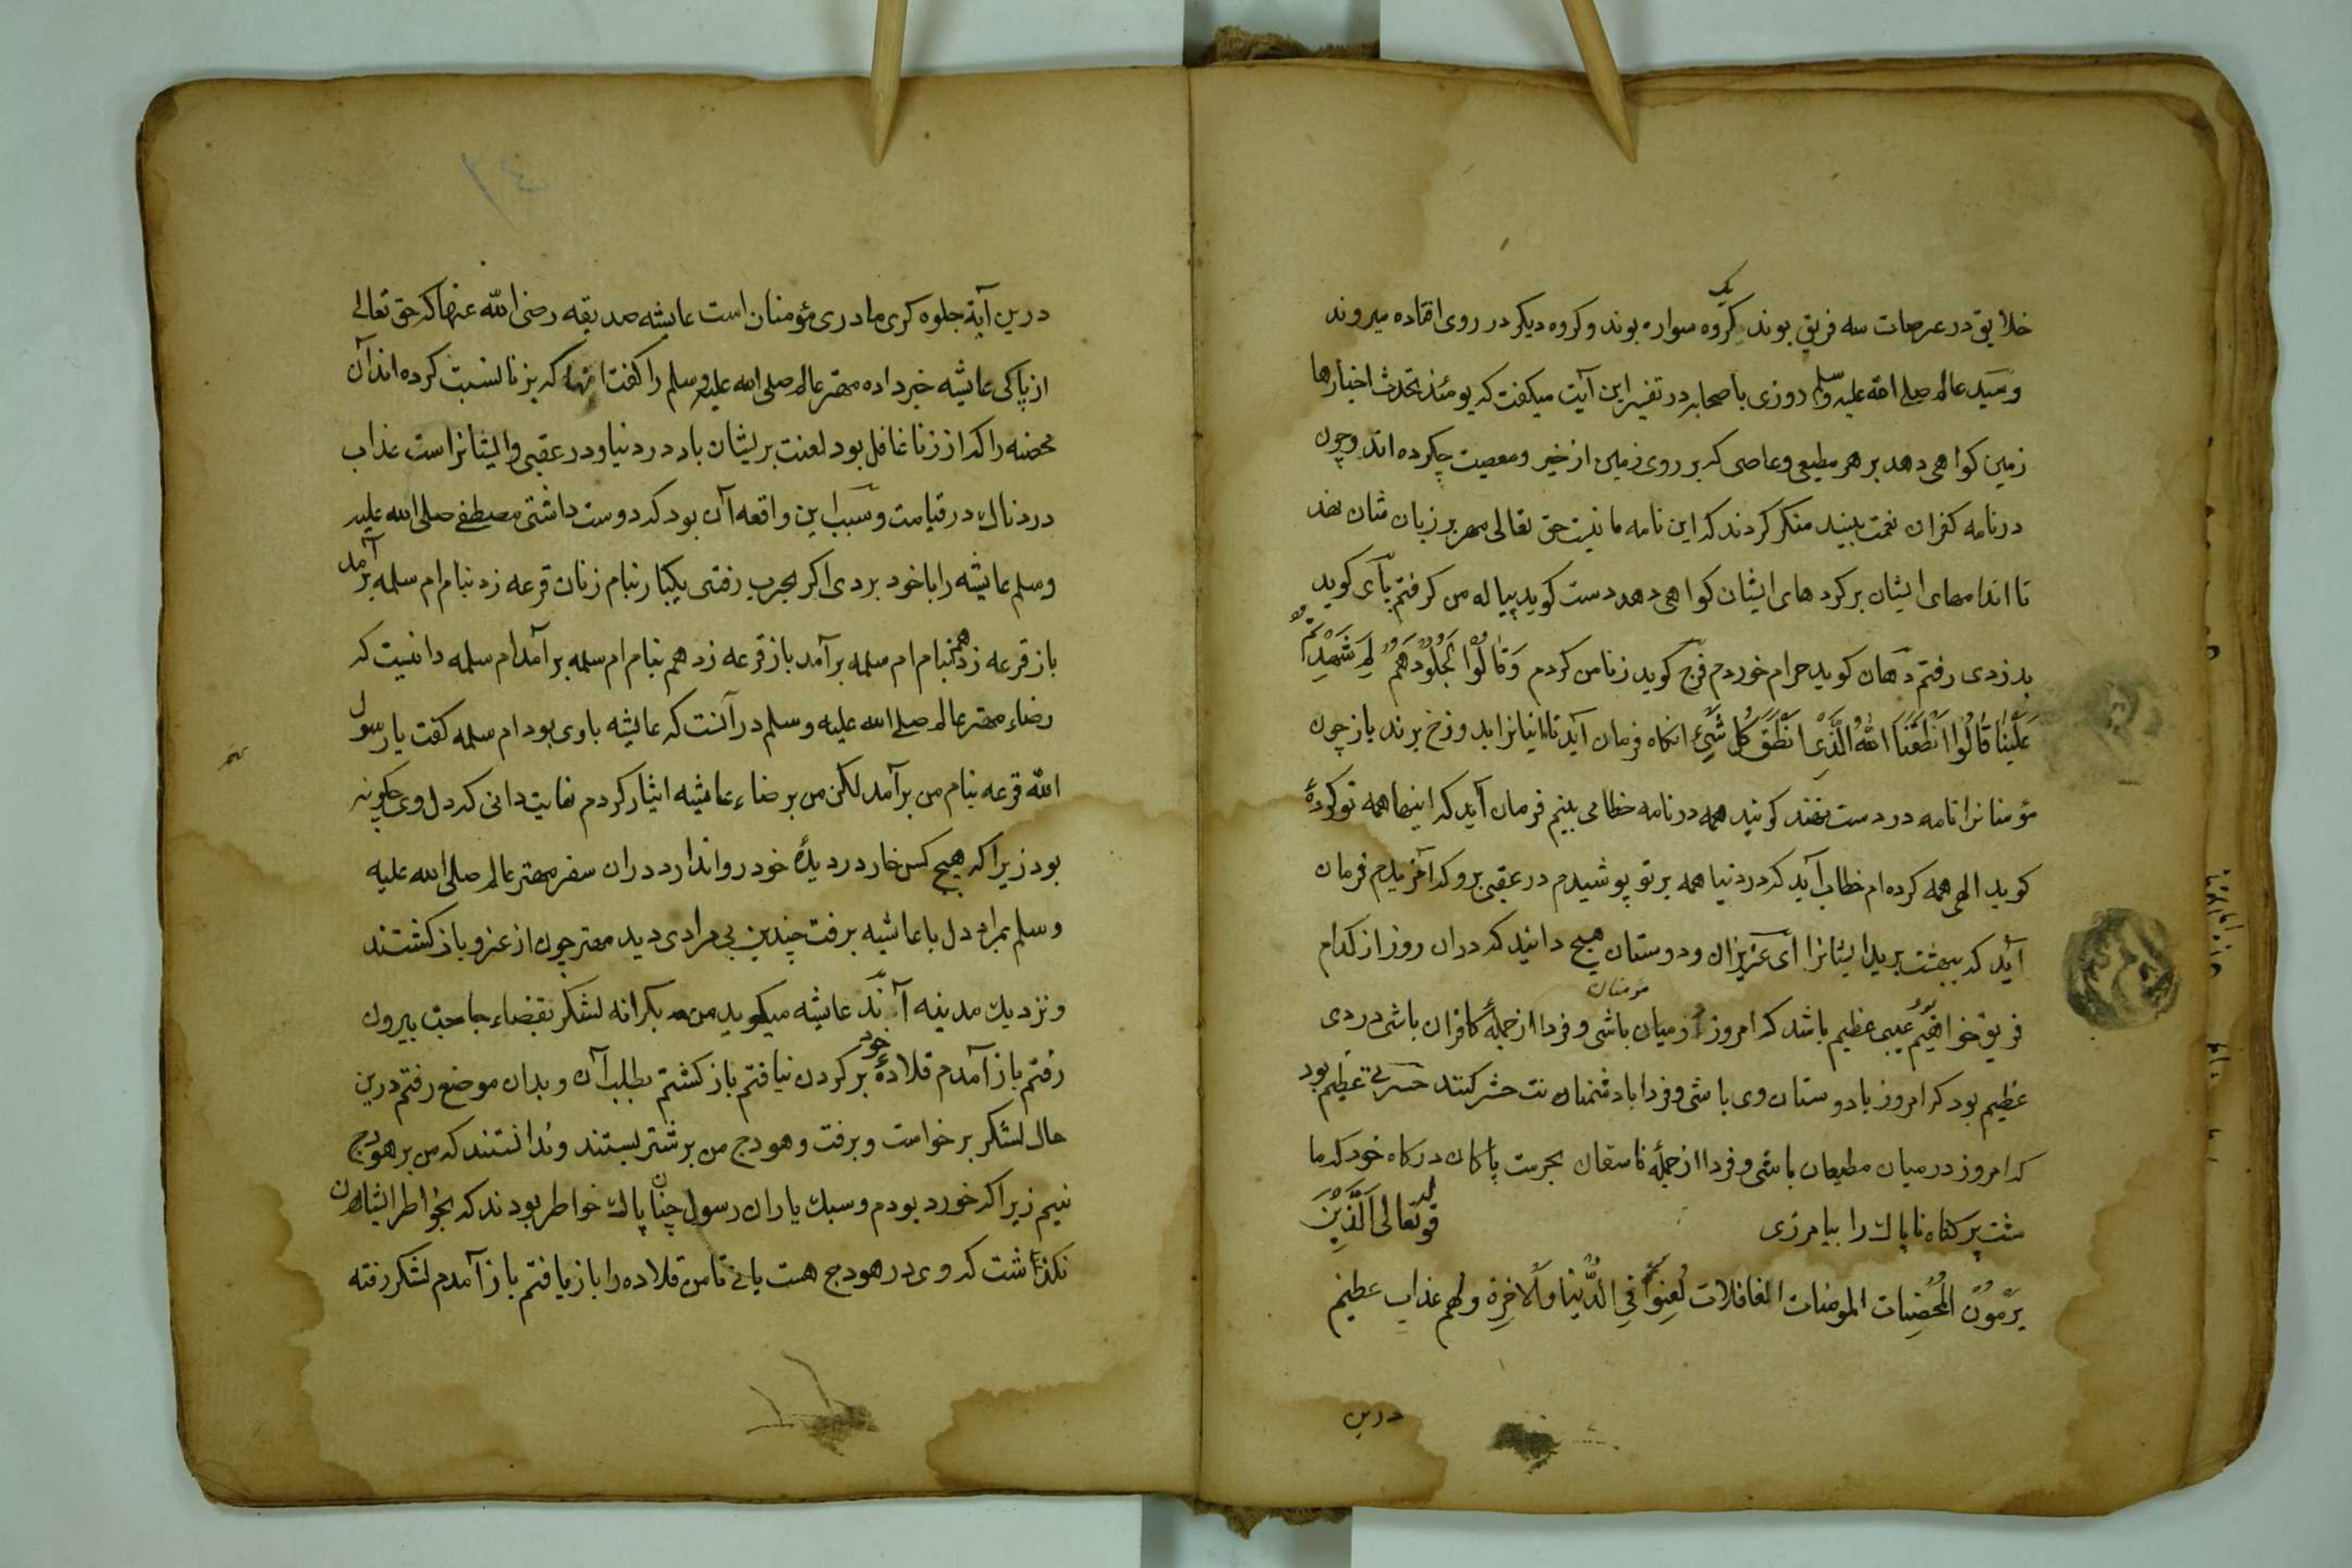 خلایق در عرصات سه فریق بوند یک کروه سواره بوند و کروه دیکر در روی افتاده میروند
و سید عالم صلی الله علیه وسلم روزی با صحابه در تفسیر این آیت میکفت که یومئذ تحدث اخبارها
زمین کواهی دهد بر هر مطیعی و عاصی که بر روی زمین از خیر و معصیت چکرده اند و چون
در نامه کفران نعمت ببینید منکر کردند که این نامه ما نیست حق تعالی مهر بر زبان شان نهد
تا اندامهای ایشان بر کردهای ایشان کواهی دهد دست کوید پیاله من کرفتم پای کوید
بدزدی رفتم دهان کوید حرام خوردم فرج کوید زنا من کردم وَقَالُوْا لِجُلُوْدِهِمْ لِمَ شَهِدْتُمْ
عَلَیْنَا قَالُوْا اَنْطَقَنَا اللهُ الَّذِیْ اَنْطَقَ کُلَّ شَیْئٍ انکاه فرمان آید تا اینانرا بدوزخ برند باز چون
مؤمنانرا نامه در دست نهند کویند همه در نامه خطا می بینم فرمان آید که اینها همه تو کردهٔ
کوید الهی همه کرده ام خطاب آید که در دنیا همه بر تو پوشیدم در عقبی برو که آمرزیدم فرمان
آید که ببهشت برید ایشانرا ای عزیزان و دوستان هیچ دانید که دران روز از کدام
فریق خواهیم بود عیبی عظیم باشد که امروز از میان مومنان باشی و فردا از جملهٔ کافران باشی دردی
عظیم بود که امروز با دوستان وی باشی و فردا با دشمنان نت حشر کنند حسرتی عظیم بود
که امروز در میان مطیعان باشی و فردا از جملهٔ فاسقان بحرمت پاکان درکاه خود که ما
مشت پر کناه ناپاک را بیامرزی قوله تعالی اَلَّذِیْنَ
یَرْمُوْنَ الْمُحْصِنَات المومنات الغافلات لُعِنُوْا فِی الدُّنْیَا وَالْاٰخِرَةِ ولهم عذاب عظیم
درین
درین آیة جلوه کری مادری مؤمنان است عایشه صدیقه رضی الله عنها که حق تعالی
از پاکی عایشه خبر داده مهتر عالم صلی الله علیه وسلم را کفت انها که بزنا نسبت کرده اند آن
محصنه را که از زنا غافل بود لعنت بریشان باد در دنیا و در عقبی و ایشانراست عذاب
دردناک در قیامت و سبب این واقعه آن بود که دوست داشتی مصطفی صلی الله علیه
وسلم عایشه را با خود بردی اکر بحرب رفتی یکبار بنام زنان قرعه زد بنام ام سلمه برآمد
باز قرعه زد هم بنام ام سلمه برآمد باز قرعه زد هم بنام ام سلمه برآمد ام سلمه دانست که
رضاء مهتر عالم صلی الله علیه وسلم در آنست که عایشه با وی بود ام سلمه کفت یا رسول
الله قرعه بنام من برآمد لکن من برضاء عایشه ایثار کردم نهایت دانی که دل وی چکونه
بود زیرا که هیچ کس خار در دیدهٔ خود روا ندارد دران سفر مهتر عالم صلی الله علیه
وسلم بمراد دل با عایشه برفت چندین بی مرادی دید مهتر چون از غزو باز کشتند
و نزدیک مدینه آمدند عایشه میکوید من بکرانه لشکر بقضاء حاجت بیرون
رفتم باز آمدم قلادهٔ خود بر کردن نیافتم باز کشتم بطلب آن و بدان موضع رفتم درین
حال لشکر برخواست و برفت و هودج من بر شتر بستند و ندانستند که من بر هودج
نیم زیرا که خورد بودم و سبک یاران رسول چنان پاک خواطر بودند که بخواطر ایشان
نکذاشت که وی در هودج هست یا نی تا من قلاده را باز یافتم باز آمدم لشکر رفته